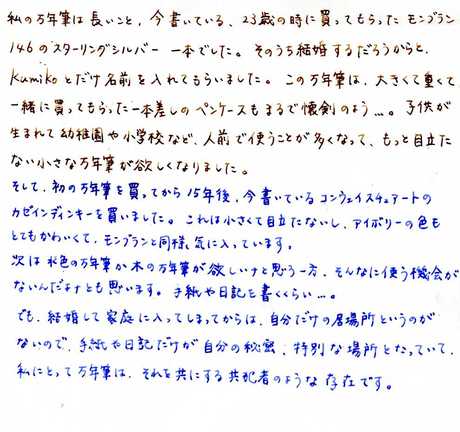 私の万年筆は長いこと、今書いている、23歳の時に買ってもらったモンブラン
146のスターリングシルバー 一本でした。そのうち結婚するだろうからと、
Kumikoとだけ名前を入れてもらいました。この万年筆は、大きくて重くて
一緒に買ってもらった一本差しのペンケースもまるで懐剣のよう…。子供が
生まれて幼稚園や小学校など、人前で使うことが多くなって、もっと目立た
ない小さな万年筆が欲しくなりました。
そして、初の万年筆を買ってから15年後、今書いているコンウェイスチュアートの
カゼインディンキーを買いました。これは小さくて目立たないし、アイボリーの色も
とてもかわいくて、モンブランと同様、気に入っています。
次は水色の万年筆か木の万年筆が欲しいナと思う一方、そんなに使う機会が
ないんだよナとも思います。手紙や日記を書くくらい…。
でも、結婚して家庭に入ってしまってからは、自分だけの居場所というのが
ないので、手紙や日記だけが自分の秘密、特別な場所となっていて、
私にとって万年筆は、それを共にする共犯者のような存在です。